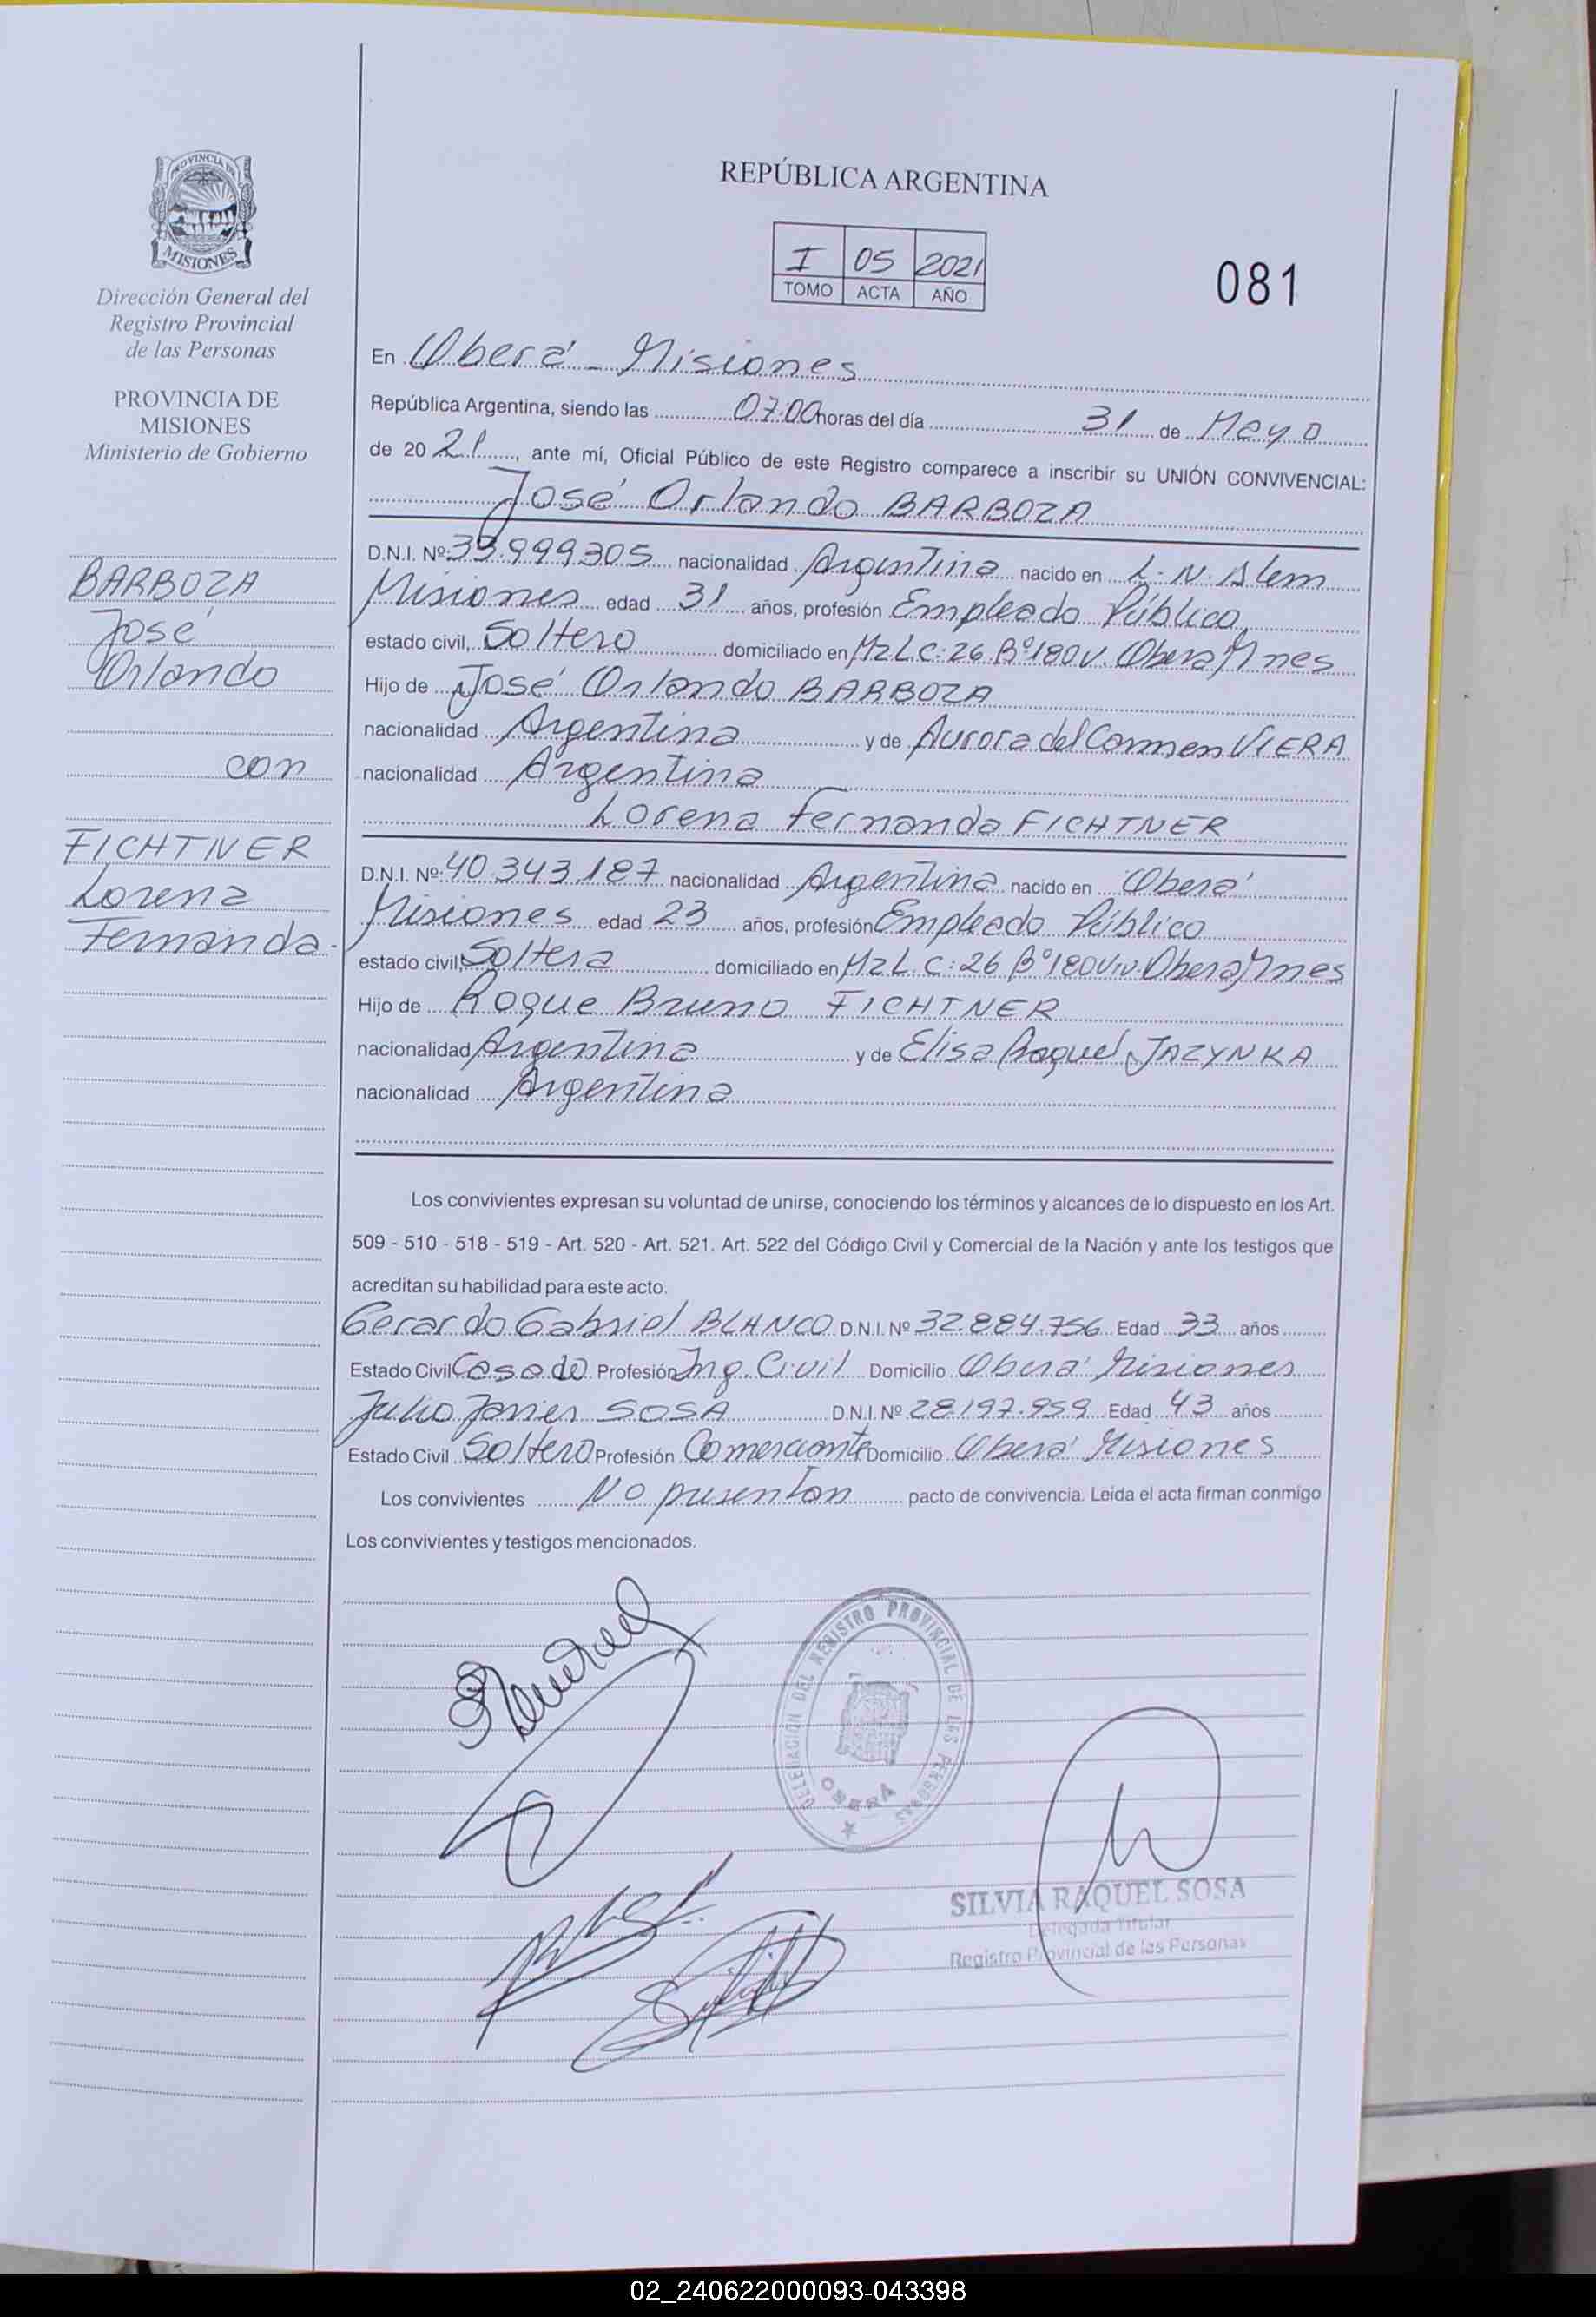 REPÚBLICA ARGENTINA
I 05 2021
TOMO ACTA AÑO
081
PROVINCIA DE
MISIONES
Dirección General del
Registro Provincial
de las Personas
PROVINCIA DE
MISIONES
Ministerio de Gobierno
BARBOZA
José
Orlando
con
FICHTNER
Lorena
Fernanda
En Oberá - Misiones
República Argentina, siendo las 07:00 horas del día 31 de Mayo
de 2021, ante mí, Oficial Público de este Registro comparece a inscribir su UNIÓN CONVIVENCIAL:
José Orlando BARBOZA
D.N.I. Nº 999.305 nacionalidad Argentina nacido en L. N. Alem
Misiones edad 31 años, profesión Empleado Público,
estado civil, Soltero domiciliado en Mz L C: 26 Bº 180 V. Oberá Mnes
Hijo de José Orlando BARBOZA
nacionalidad Argentina y de Aurora del Carmen VIERA
nacionalidad Argentina
Lorena Fernanda FICHTNER
D.N.I. Nº 40.343.187 nacionalidad Argentina nacido en Oberá
Misiones edad 23 años, profesión Empleado Público
estado civil, Soltera domiciliado en Mz L C: 26 Bº 180 Viv. Oberá Mnes
Hijo de Roque Bruno FICHTNER
nacionalidad Argentina y de Elisa Raquel JAZYNKA
nacionalidad Argentina
Los convivientes expresan su voluntad de unirse, conociendo los términos y alcances de lo dispuesto en los Art.
509 - 510 - 518 - 519 - Art. 520 - Art. 521. Art. 522 del Código Civil y Comercial de la Nación y ante los testigos que
acreditan su habilidad para este acto.
Gerardo Gabriel BLANCO D.N.I. Nº 32.884.756 Edad 33 años
Estado Civil Casado Profesión Ing. Civil Domicilio Oberá Misiones
Julio Javier SOSA D.N.I. Nº 28.197.959 Edad 43 años
Estado Civil Soltero Profesión Comerciante Domicilio Oberá Misiones
Los convivientes No presentan pacto de convivencia. Leída el acta firman conmigo
Los convivientes y testigos mencionados.
DELEGACIÓN DEL REGISTRO PROVINCIAL DE LAS PERSONAS
OBERÁ
SILVIA RAQUEL SOSA
Delegada Titular
Registro Provincial de las Personas
02_240622000093-043398